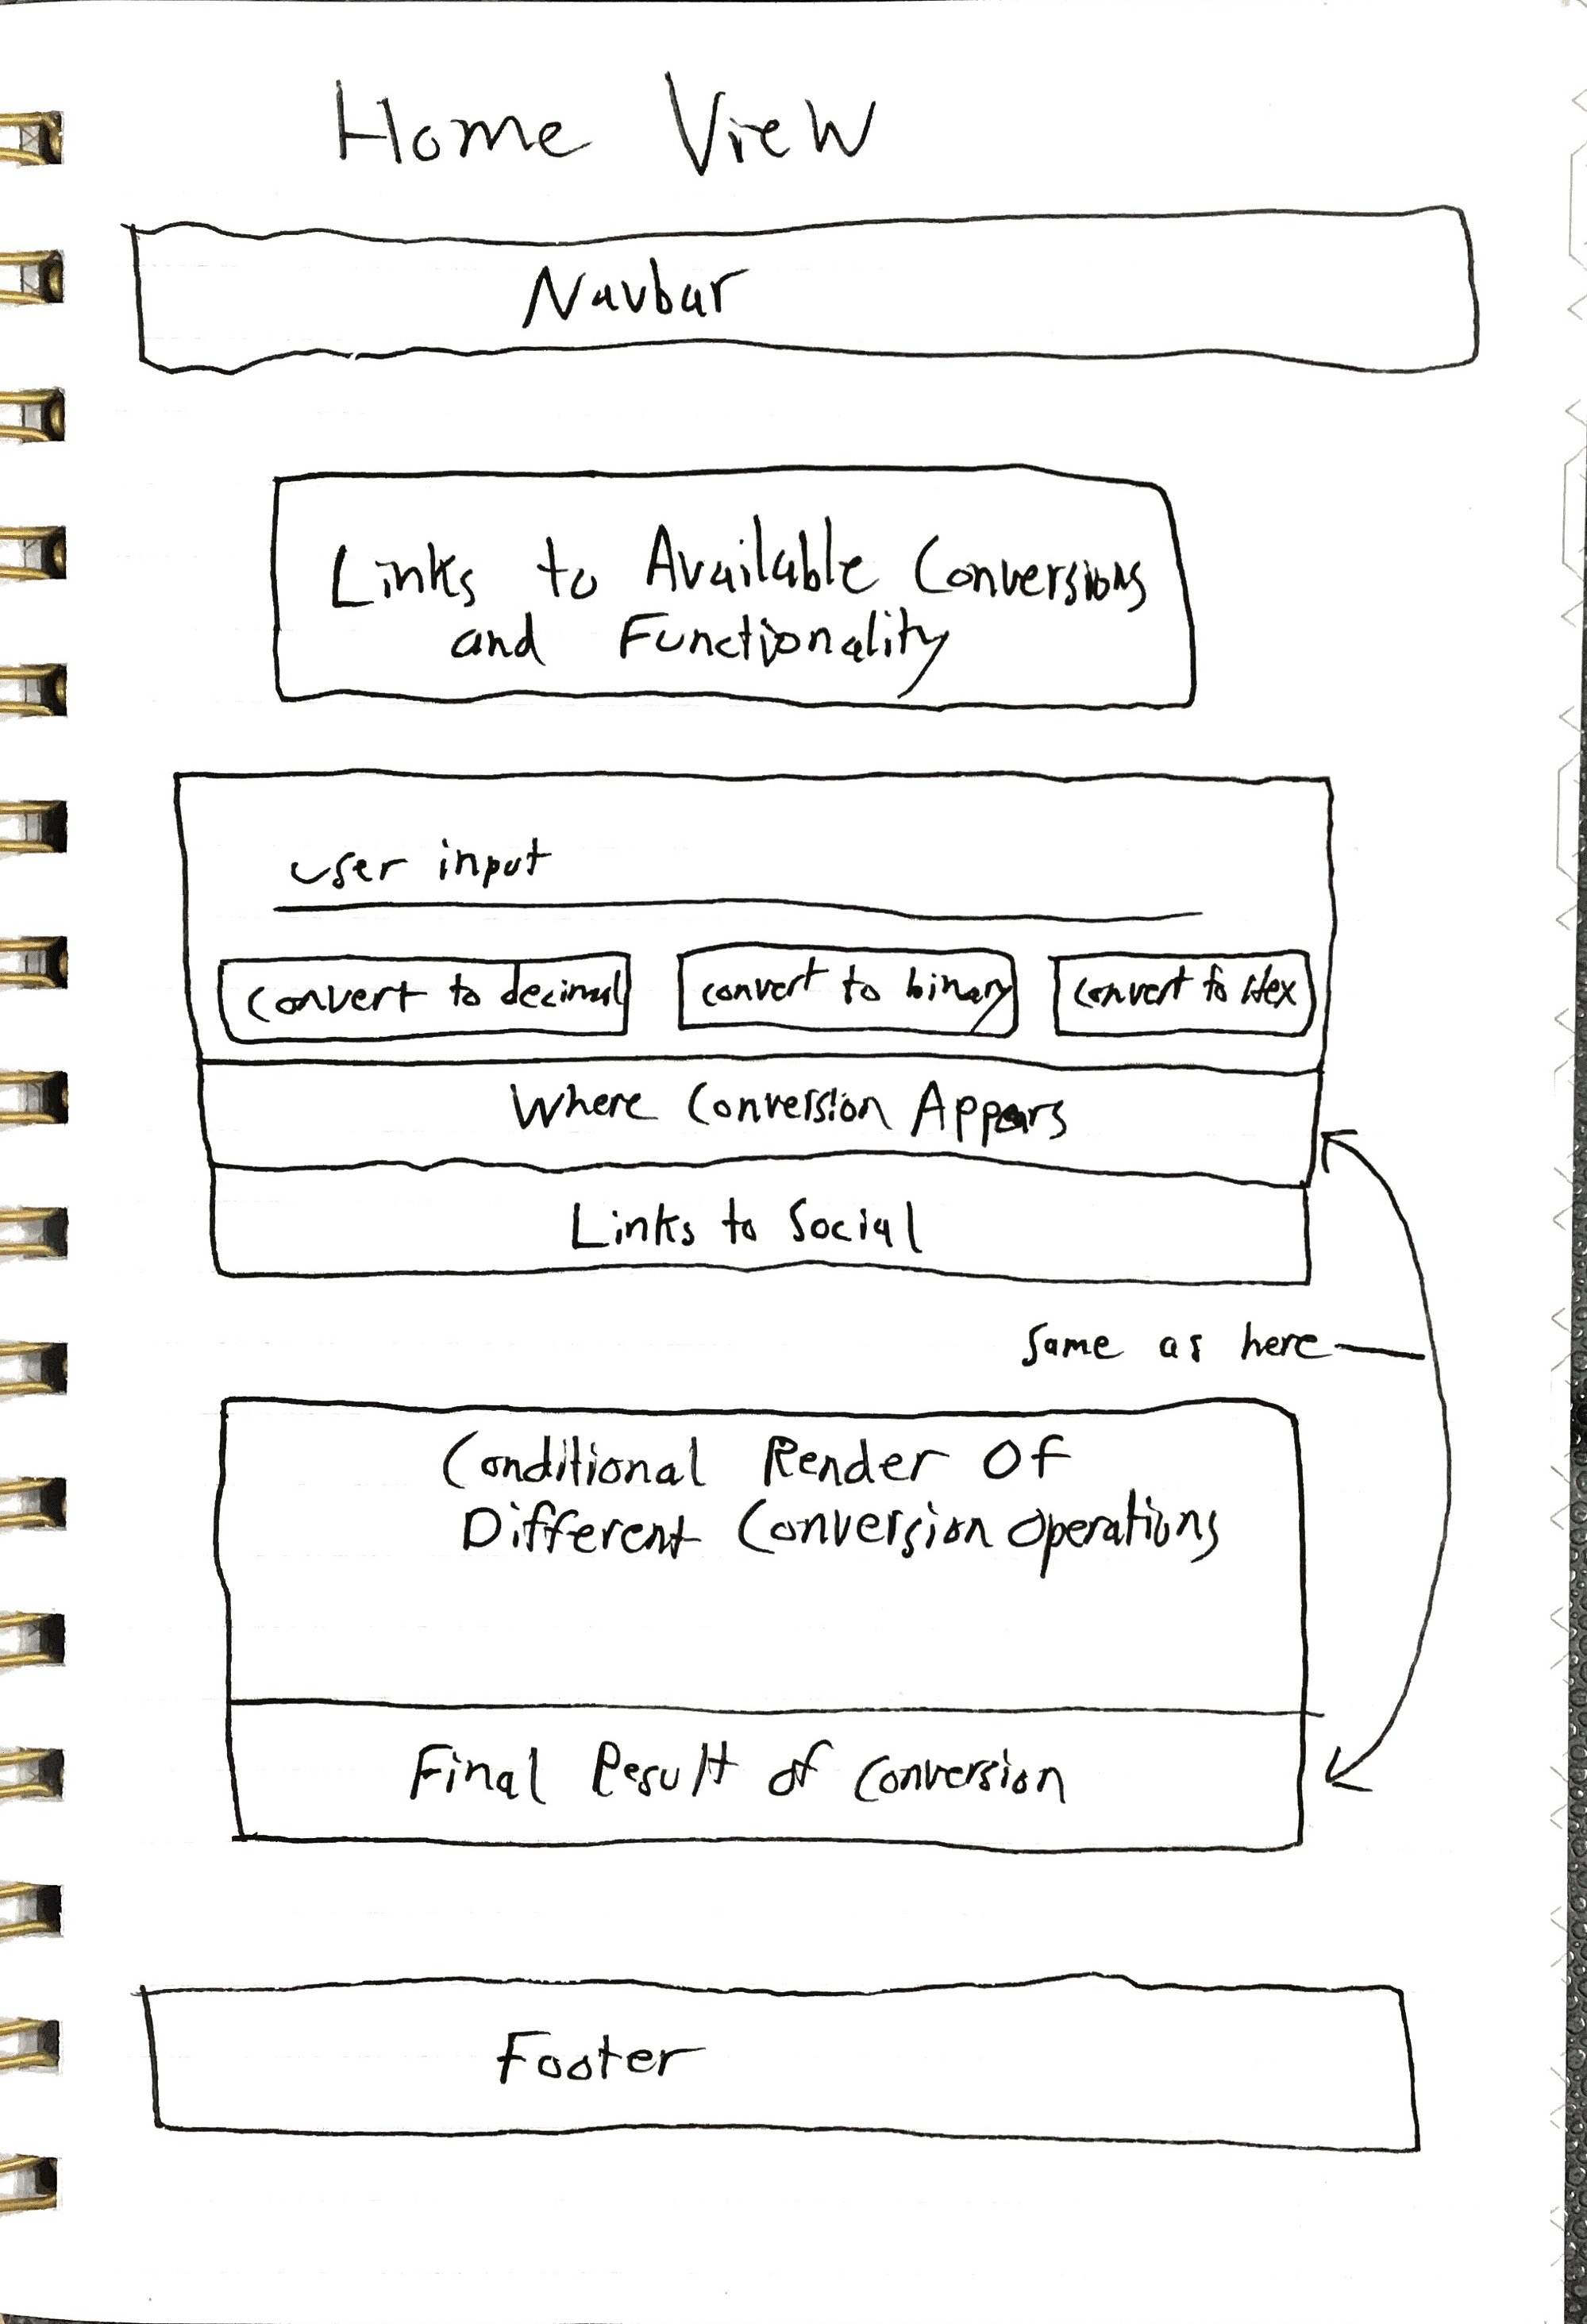 Home View
Navbar
Links to Available Conversions
and Functionality
user input
convert to decimal
convert to binary
convert to Hex
Where Conversion Appears
Links to Social
Same as here
Conditional Render Of
Different Conversion Operations
Final Result of Conversion
Footer